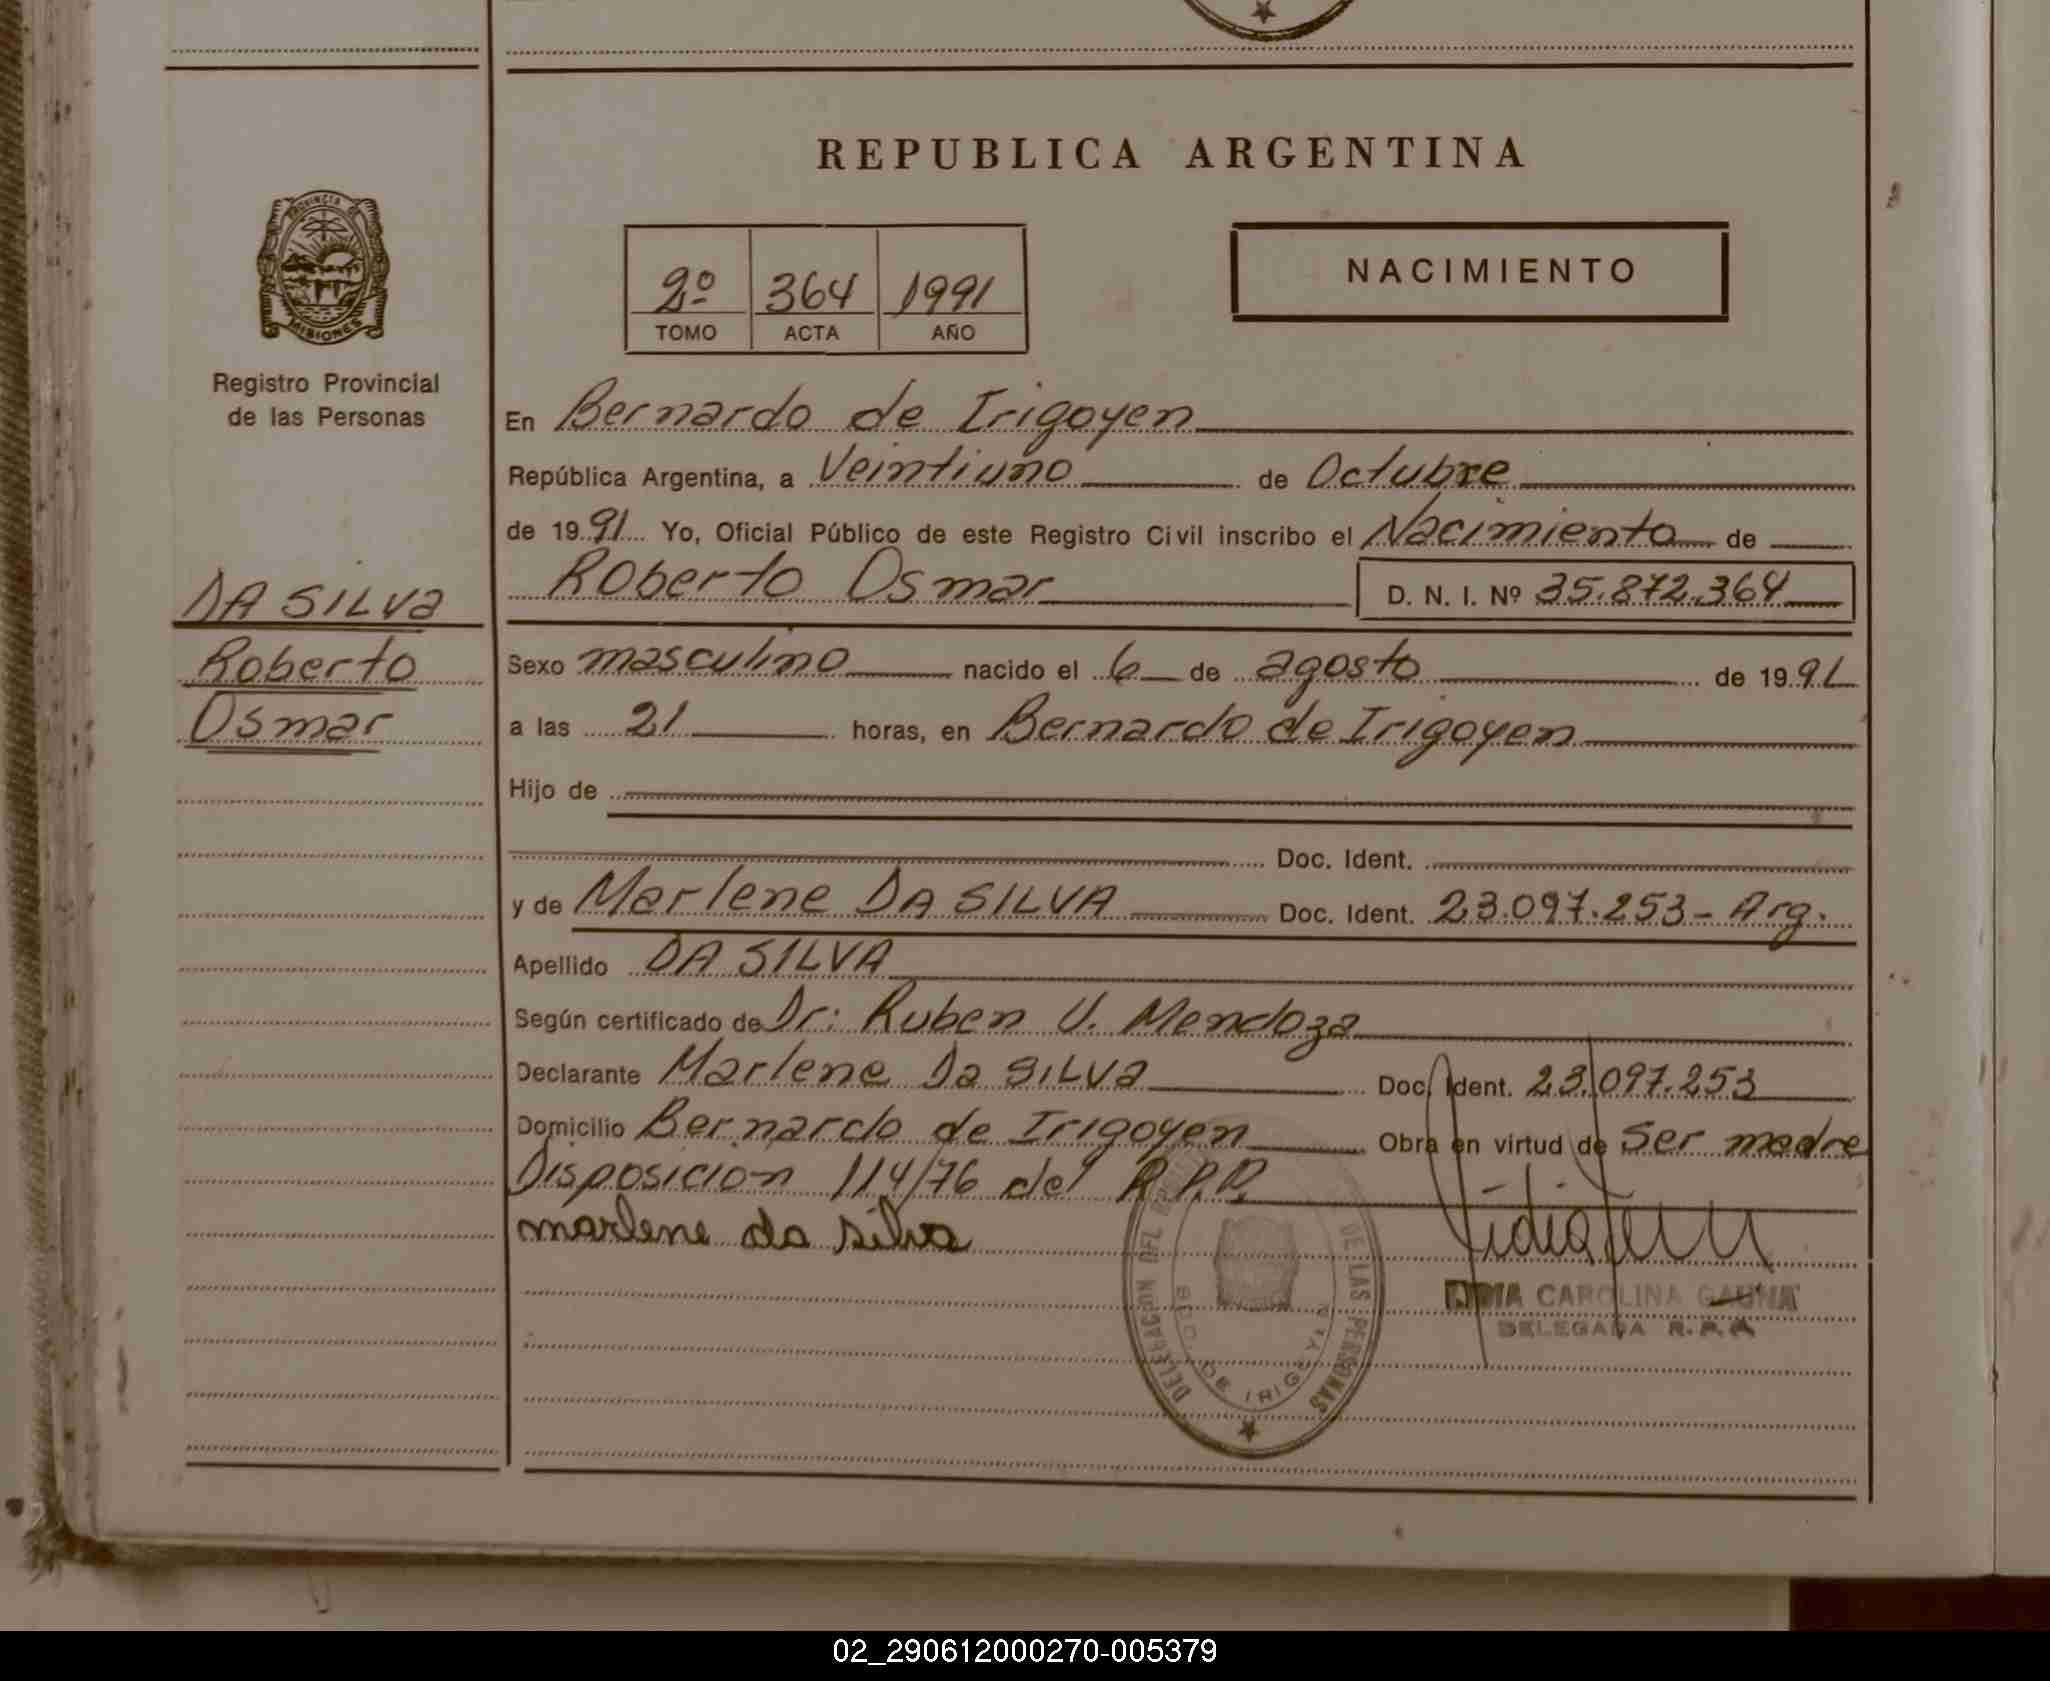 REPUBLICA ARGENTINA
PROVINCIA DE
MISIONES
Registro Provincial
de las Personas
2º 364 1991
TOMO ACTA AÑO
NACIMIENTO
DA SILVA
Roberto
Osmar
En Bernardo de Irigoyen
República Argentina, a Veintiuno de Octubre
de 1991 Yo, Oficial Público de este Registro Civil inscribo el Nacimiento de
Roberto Osmar D. N. I. Nº 35.872.364
Sexo masculino nacido el 6 de agosto de 1991
a las 21 horas, en Bernardo de Irigoyen
Hijo de
Doc. Ident.
y de Marlene DA SILVA Doc. Ident. 23.097.253 - Arg.
Apellido DA SILVA
Según certificado de Dr: Ruben U. Mendoza
Declarante Marlene Da SILVA Doc. Ident. 23.097.253
Domicilio Bernardo de Irigoyen Obra en virtud de ser madre
Disposicion 114/76 del R.P.P.
marlene da silva
LIDIA CAROLINA GAUNA
DELEGADA R.P.P.
DELEGACION DEL DE LAS PERSONAS
BDO. DE IRIGOYEN
02_290612000270-005379